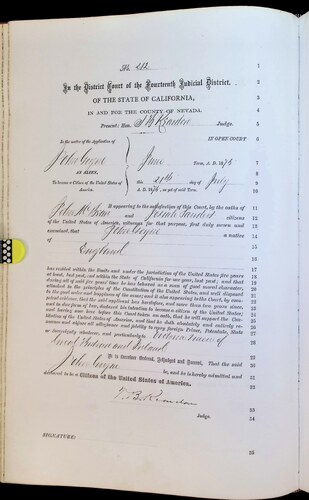 No. 212
1
In the District Court of the Fourteenth Judicial District,
2
OF THE STATE OF CALIFORNIA,
3
IN AND FOR THE COUNTY OF NEVADA.
4
Present: Hon. T B Reardon Judge.
5
In the matter of the Application of IN OPEN COURT
6
John Coyne June Term, A. D. 1875
7
AN ALIEN,
8
To become a Citizen of the United States of this day of July
9
America. A. D. 1875, as yet of said Term.
10
It appearing to the satisfaction of this Court, by the oaths of
11
John McBrian and citizens
12
of the United States of America, witnesses for that purpose, first duly sworn and
13
examined, that John Coyne a native
14
of
15
England
16
has resided within the limits and under the jurisdiction of the United States five years
17
at least, last past, and within the State of California for one year, last past; and that
18
during all of said five years' time he has behaved as a man of good moral character,
19
attached to the principles of the Constitution of the United States, and well disposed
20
to the good order and happiness of the same; and it also appearing to the Court, by com-
21
petent evidence, that the said applicant has heretofore, and more than two years since,
22
and in due form of law, declared his intention to become a citizen of the United States;
23
and having now here before this Court taken an oath, that he will support the Con-
24
stitution of the United States of America, and that he doth absolutely and entirely re-
25
nounce and abjure all allegiance and fidelity to every foreign Prince, Potentate, State
26
or Sovereignty whatever, and particularly to Victoria Queen of
27
Great Britain and Ireland
28
It is therefore Ordered, Adjudged and Decreed, That the said
29
John Coyne be, and he is hereby admitted and
30
declared to be a Citizen of the United States of America.
31
T. B. Reardon
32
Judge.
33
34
SIGNATURE:
35